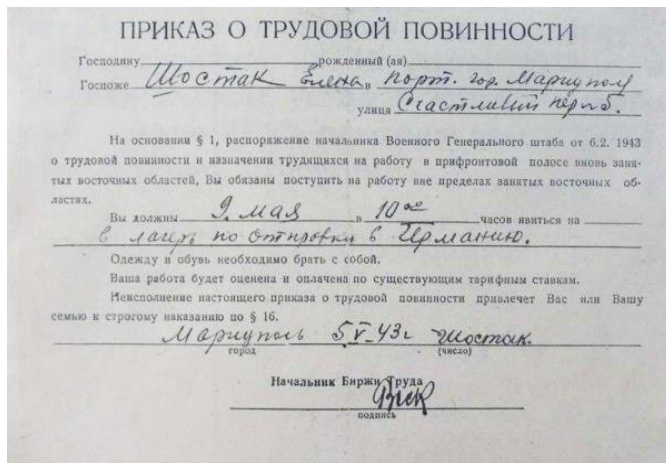 ПРИКАЗ О ТРУДОВОЙ ПОВИННОСТИ
Господину рожденный (ая)
Госпоже Шостак Елена в порт. гор. Мариуполь
улица Счастливый
На основании § 1, распоряжение начальника Военного Генерального штаба от 6.2. 1943
о трудовой повинности и назначении трудящихся на работу в прифронтовой полосе вновь заня-
тых восточных областей, Вы обязаны поступить на работу вне пределах занятых восточных об-
ластях.
Вы должны 9. мая в 10 00 часов явиться на
в лагерь по отправки в Германию.
Одежду и обувь необходимо брать с собой.
Ваша работа будет оценена и оплачена по существующим тарифным ставкам.
Неисполнение настоящего приказа о трудовой повинности привлечет Вас или Вашу
семью к строгому наказанию по § 16.
Мариуполь 5 V-43г Шостак.
город (число)
Начальник Биржи Труда
подпись